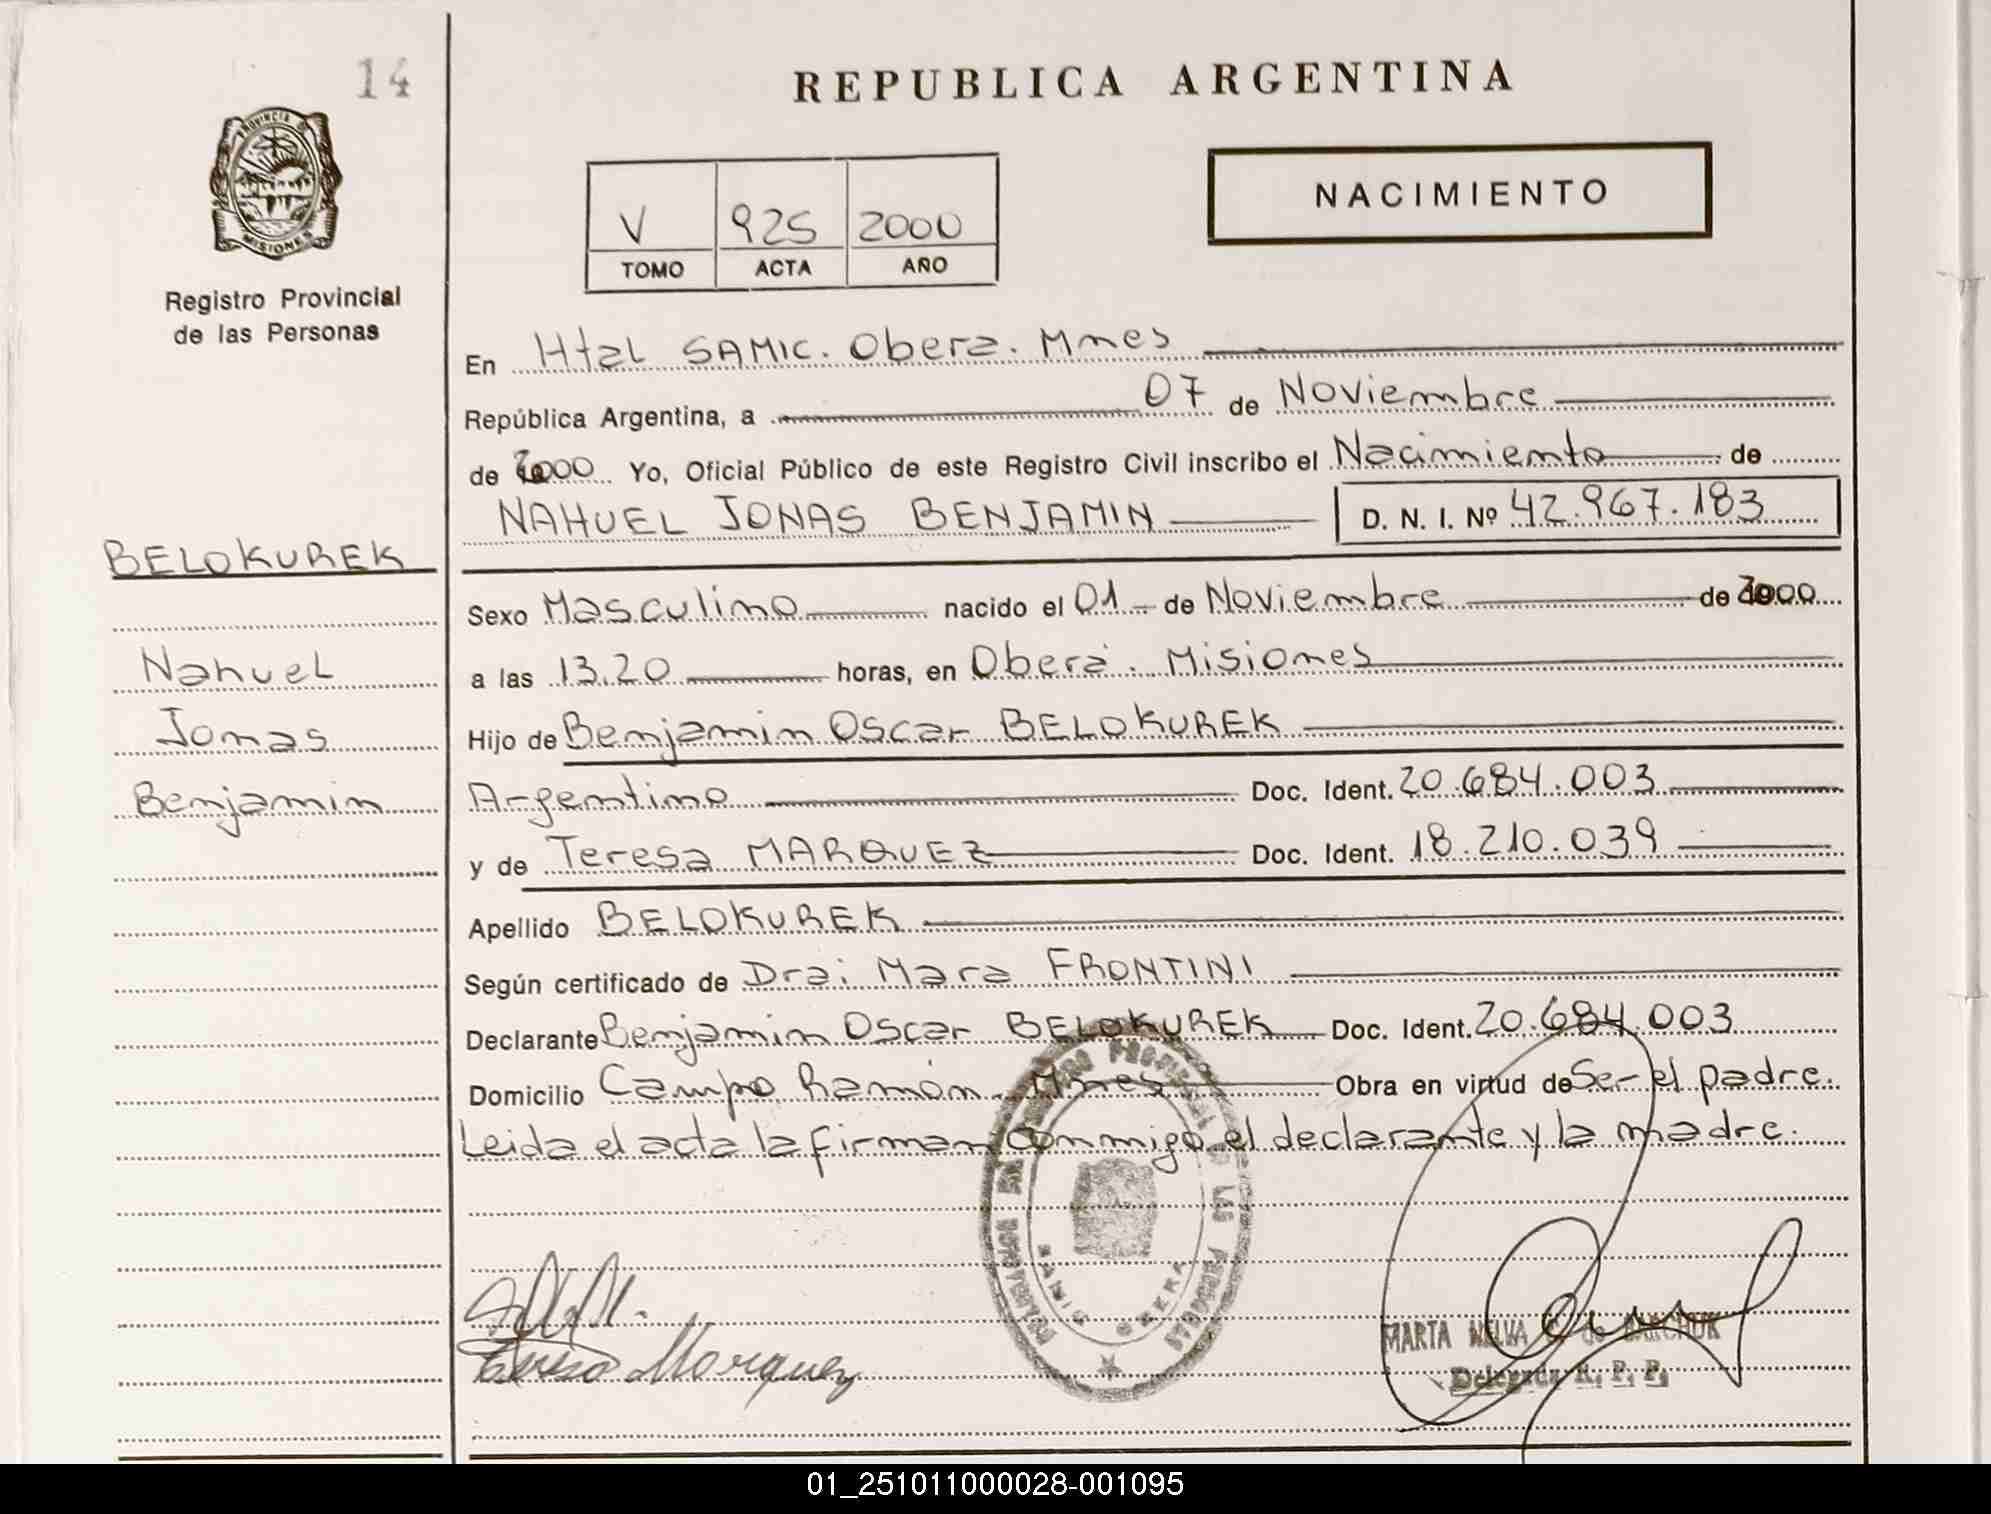 14
REPUBLICA ARGENTINA
PROVINCIA D
MISIONES
Registro Provincial
de las Personas
NACIMIENTO
V 925 2000
TOMO ACTA AÑO
En Htal SAMIC. Obera. Mnes
República Argentina, a 07 de Noviembre
de 2000 Yo, Oficial Público de este Registro Civil inscribo el Nacimiento de
NAHUEL JONAS BENJAMIN D. N. I. Nº 42.967.183
BELOKUREK
Nahuel
Jonas
Benjamin
Sexo Masculino nacido el 01 de Noviembre de 2000
a las 13.20 horas, en Oberá. Misiones
Hijo de Benjamin Oscar BELOKUREK
Argentino Doc. Ident. 20.684.003
y de Teresa MARQUEZ Doc. Ident. 18.210.039
Apellido BELOKUREK
Según certificado de Dra: Mara FRONTINI
Declarante Benjamin Oscar BELOKUREK Doc. Ident. 20.684.003
Domicilio Campo Ramón. Mnes Obra en virtud de Ser el padre.
Leida el acta la firman conmigo el declarante y la madre.
PROVINCIAL DE LAS PERSONAS
OBERA
Teresa Marquez
MARTA NELVA
Delegada R. P. P.
01_251011000028-001095